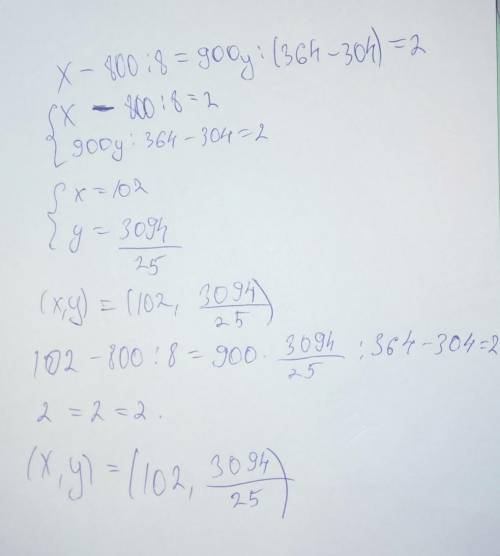 x - 800 : 8 = 900y : (364 - 304) = 2
x - 800 : 8 = 2
900y : 364 - 304 = 2
x = 102
y = 3094/25
(x, y) = (102, 3094/25)
102 - 800 : 8 = 900 · 3094/25 : 364 - 304 = 2
2 = 2 = 2.
(x, y) = (102, 3094/25)